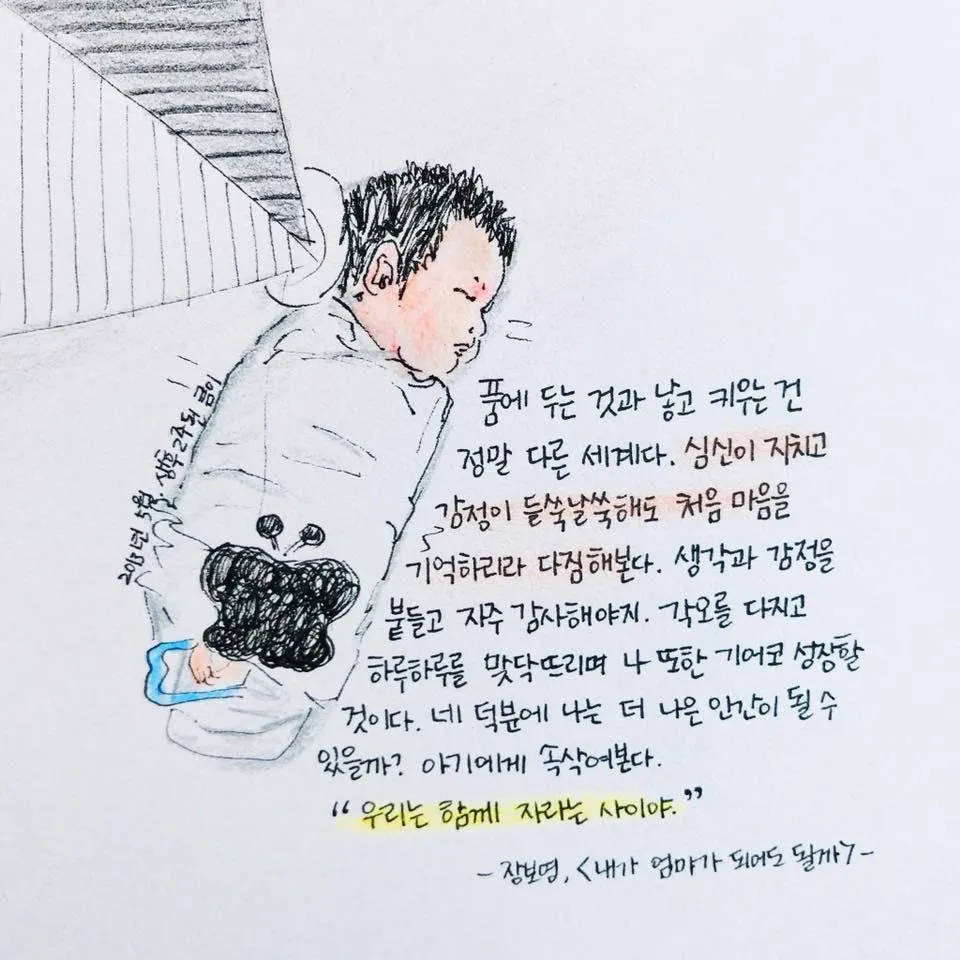 2013년 5월. 생후 2주된 금이
품에 두는 것과 낳고 키우는 건
정말 다른 세계다. 심신이 지치고
감정이 들쑥날쑥해도 처음 마음을
기억하리라 다짐해본다. 생각과 감정을
붙들고 자주 감사해야지. 각오를 다지고
하루하루를 맞닥뜨리며 나 또한 기어코 성장할
것이다. 네 덕분에 나는 더 나은 인간이 될 수
있을까? 아기에게 속삭여본다.
“우리는 함께 자라는 사이야.”
- 장보영, <내가 엄마가 되어도 될까> -